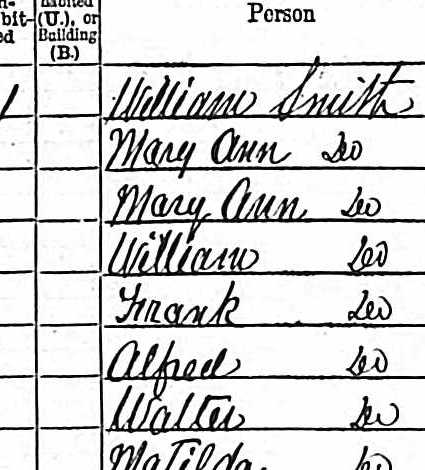 Person
habited
(U.), or
Building
(B.)
William Smith
Mary Ann Do
Mary Ann Do
William Do
Frank Do
Alfred Do
Walter Do
Matilda Do